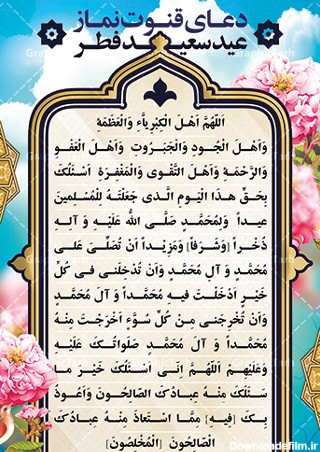 دعای قنوت نماز
عید سعید فطر
اَللّهُمَّ اَهْلَ الْکِبْرِیاَّءِ وَالْعَظَمَةِ
وَاَهْلَ الْجُودِ وَالْجَبَرُوتِ وَاَهْلَ الْعَفْوِ
وَالرَّحْمَةِ وَاَهْلَ التَّقْوی وَالْمَغْفِرَةِ اَسْئَلُکَ
بِحَقِّ هذَا الْیَومِ الَّذی جَعَلْتَهُ لِلْمُسْلِمینَ
عیداً وَلِمُحَمَّدٍ صَلَّی اللهُ عَلَیْهِ وَ آلِهِ
ذُخْراً [وَشَرَفاً] وَمَزْیداً اَنْ تُصَلِّیَ عَلی
مُحَمَّدٍ وَ آلِ مُحَمَّدٍ وَاَنْ تُدْخِلَنی فی کُلِّ
خَیْرٍ اَدْخَلْتَ فیهِ مُحَمَّداً وَ آلَ مُحَمَّدٍ
وَاَنْ تُخْرِجَنی مِنْ کُلِّ سُوَّءٍ اَخْرَجْتَ مِنْهُ
مُحَمَّداً وَ آلَ مُحَمَّدٍ صَلَواتُکَ عَلَیْهِ
وَعَلَیْهِمْ اَللّهُمَّ اِنّی اَسْئَلُکَ خَیْرَ ما
سَئَلَکَ مِنْهُ عِبادُکَ الصّالِحُونَ وَاَعُوذُ
بِکَ [فیهِ] مِمَّا اسْتَعاذَ مِنْهُ عِبادُکَ
الصّالِحُونَ [الْمُخْلِصُونَ]
Downloadefilm.ir